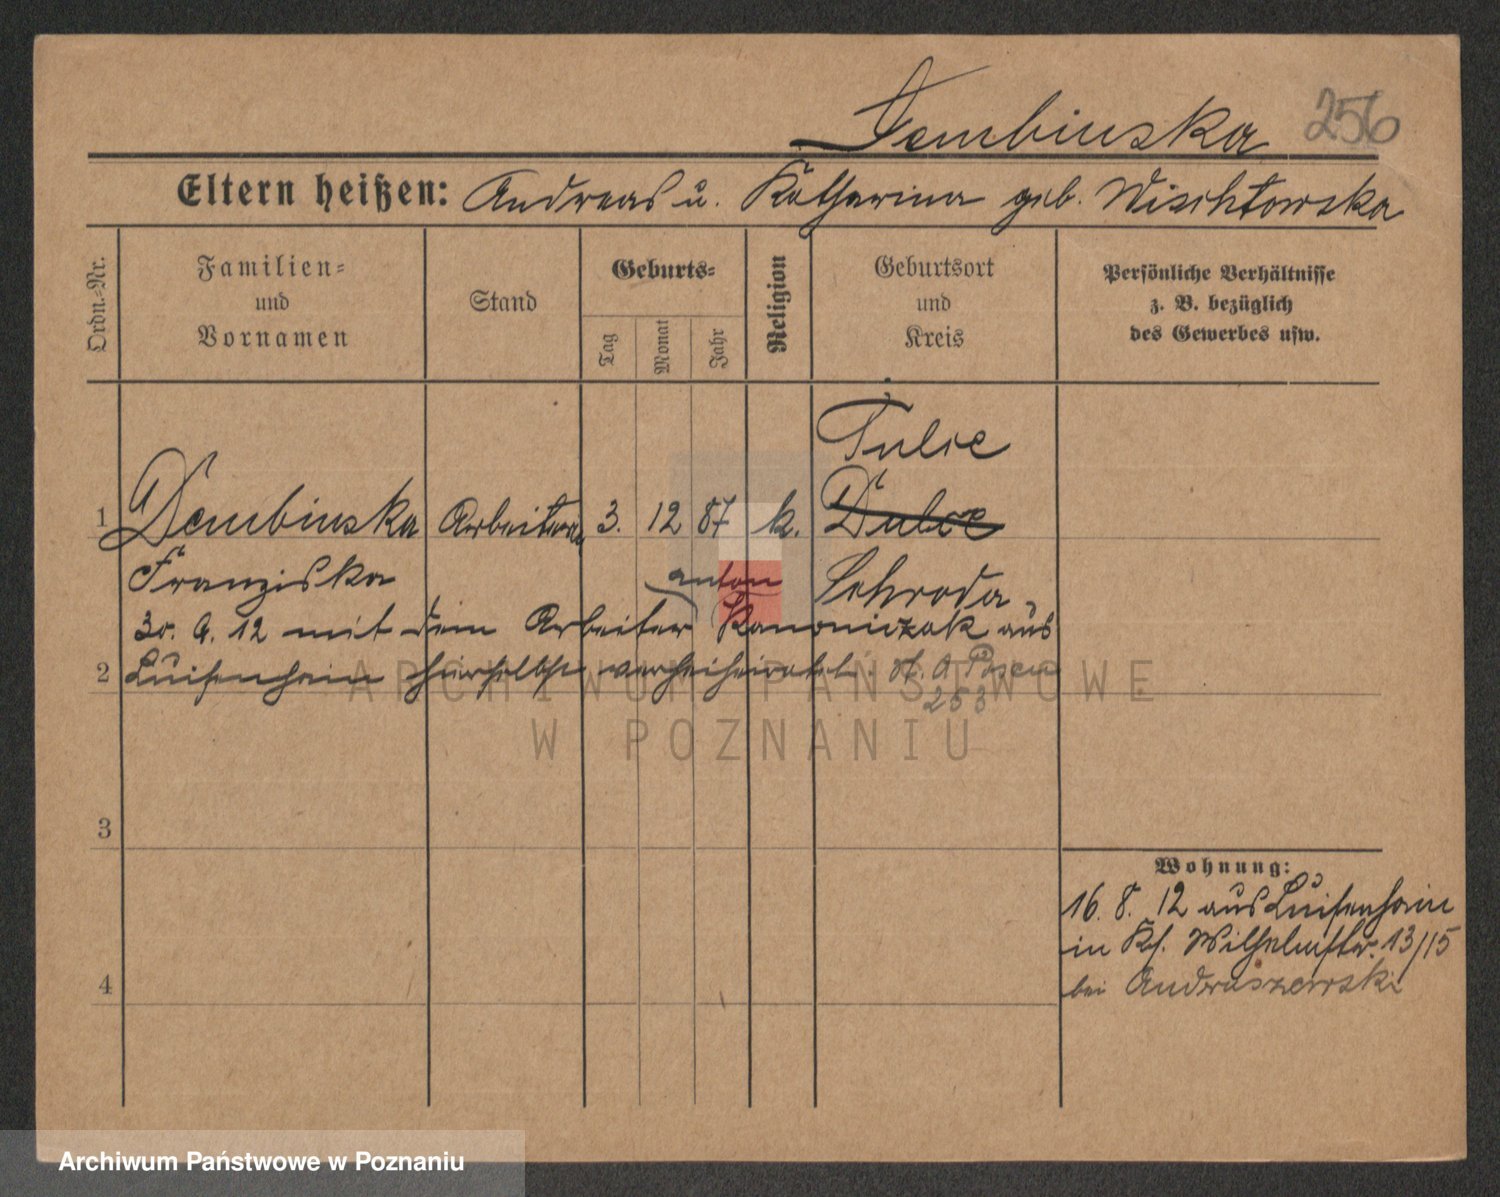 Dembinska 256
Eltern heißen: Andreas u. Katharina geb. Wischtowska
Ordn.-Nr.
Familien-
und
Vornamen
Stand
Geburts-
Tag
Monat
Jahr
Religion
Geburtsort
und
Kreis
Persönliche Verhältnisse
z. B. bezüglich
des Gewerbes usw.
Tulce
1 Dembinska Arbeiterin 3. 12 87 k. Dulce
Franziska anton Schroda
30. 9. 12 mit dem Arbeiter Kanoniczak aus
2 Luisenhain hierselbst verheiratet. St. A Posen
253
3
4
Wohnung:
16. 8. 12 aus Luisenhain
in Ks. Wilhelmstr. 13/15
bei Andruszewski
ARCHIWUM PAŃSTWOWE
W POZNANIU
Archiwum Państwowe w Poznaniu